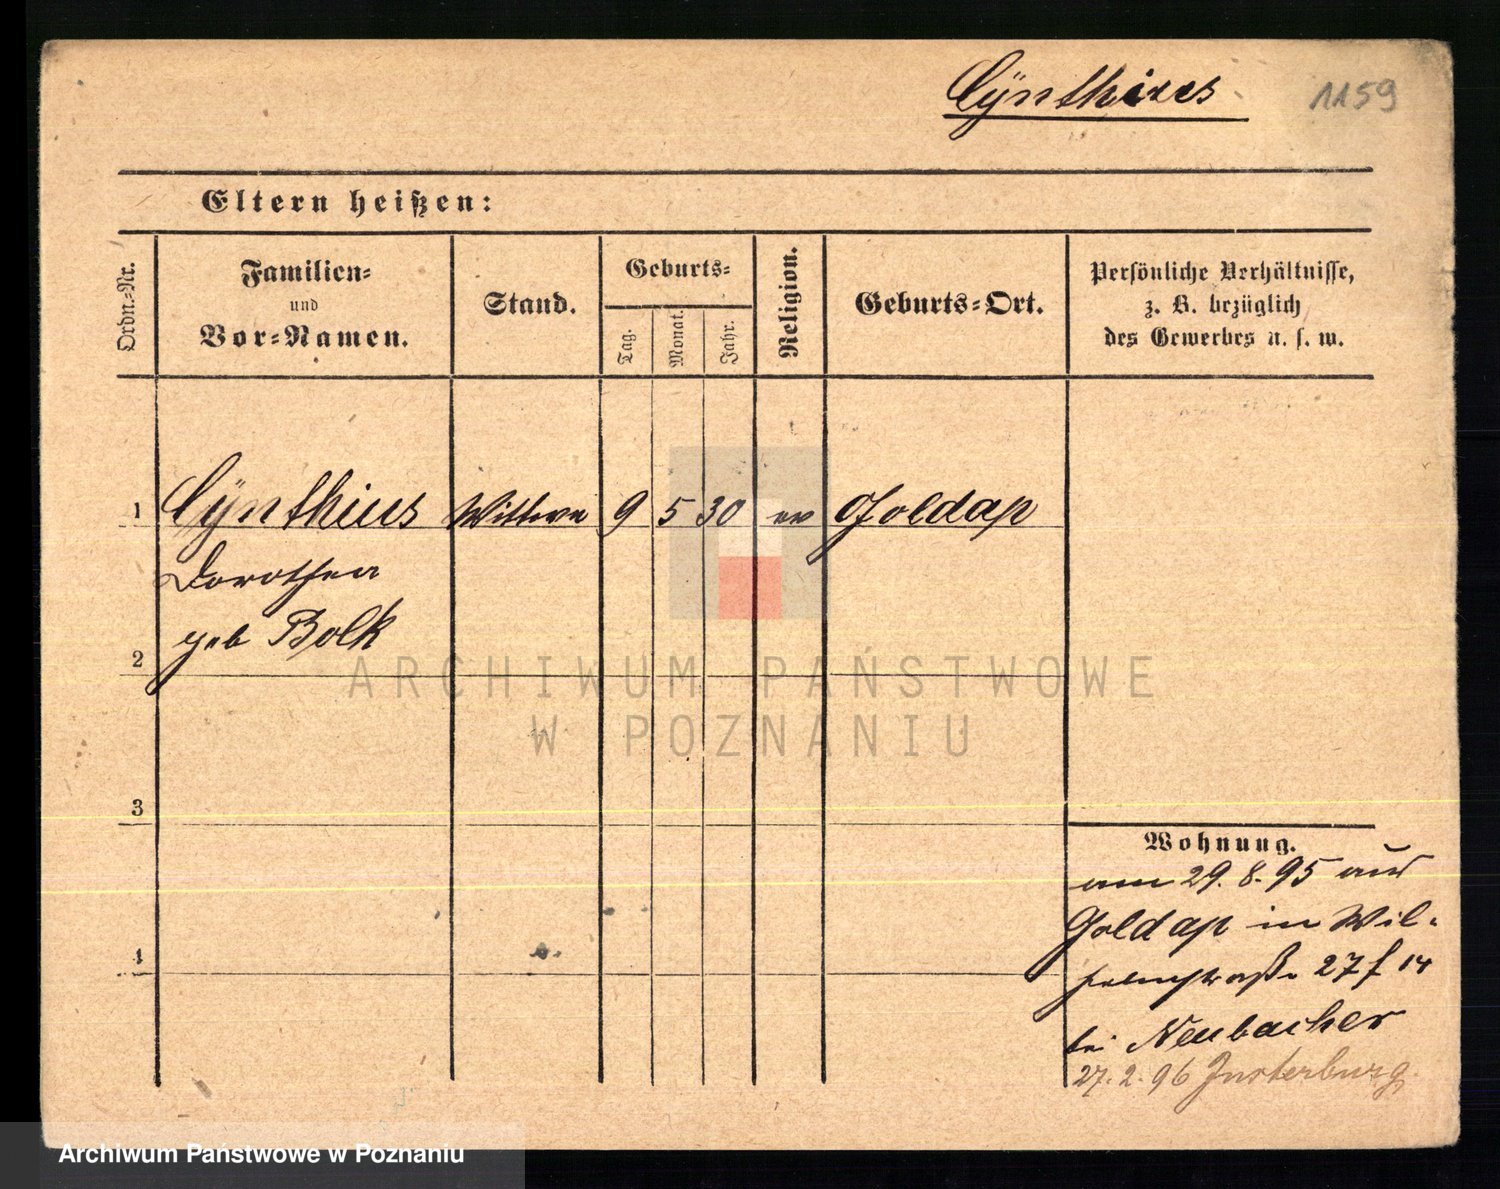 Cÿnthius 1159
Eltern heißen:
Ordn.-Nr.
Familien-
und
Vor-Namen.
Stand.
Geburts-
Tag.
Monat.
Jahr.
Religion.
Geburts-Ort.
Persönliche Verhältnisse,
z. B. bezüglich
des Gewerbes u. s. w.
1 Cÿnthius Wittwe 9 5 30 ev Goldap
Dorothea
geb Bolk
2
3
4
Wohnung.
am 29. 8. 95 aus
Goldap in Wil-
helmstraße 27 f 14
bei Neubacher
27. 2. 96 Insterburg.
ARCHIWUM PAŃSTWOWE
W POZNANIU
Archiwum Państwowe w Poznaniu